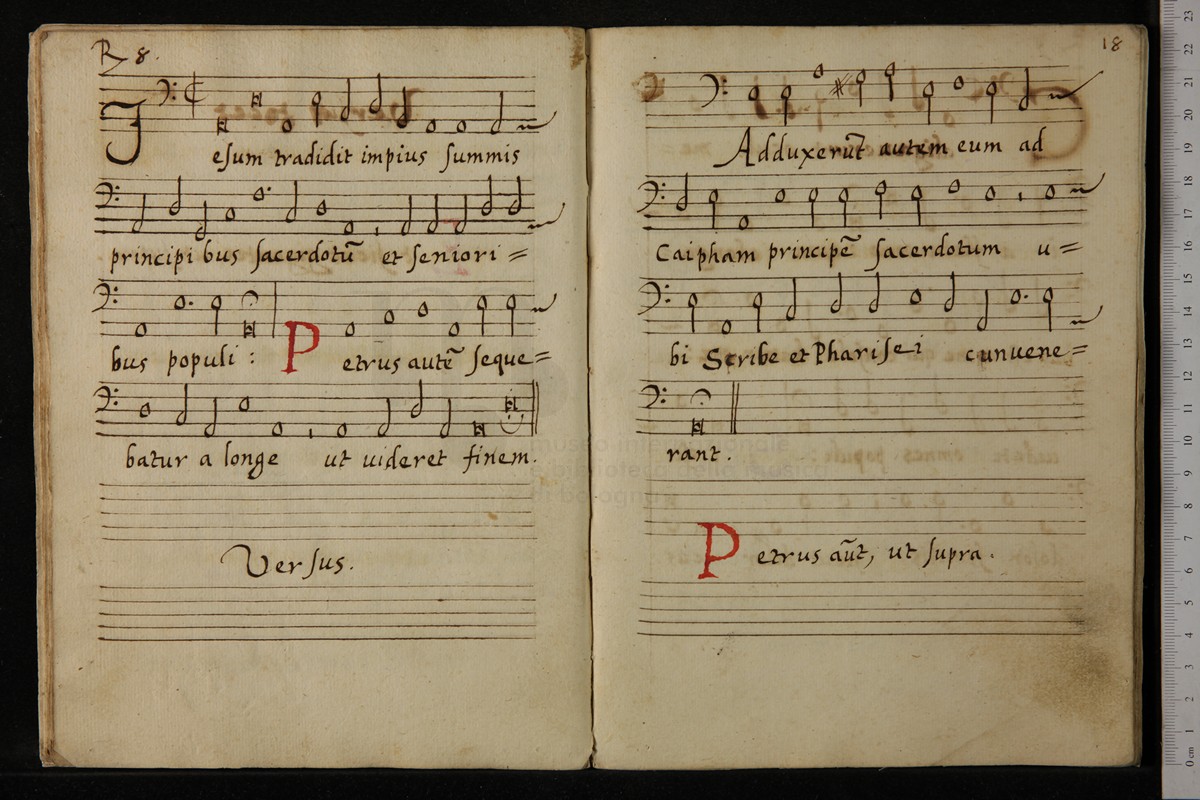 R 8.
Jesum tradidit impius summis
principibus sacerdotū et seniori=
bus populi: Petrus autē seque=
batur a longe ut uideret finem.
Versus.
18
Adduxerūt autem eum ad
Caipham principē sacerdotum u=
bi Scribe et Pharisei conuene=
rant.
Petrus aūt, ut supra.
museo internazionale
e biblioteca della musica
di bologna